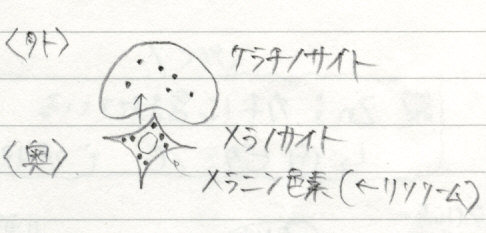 〈外〉
ケラチノサイト
メラノサイト
〈奥〉
メラニン色素(←リソソーム)